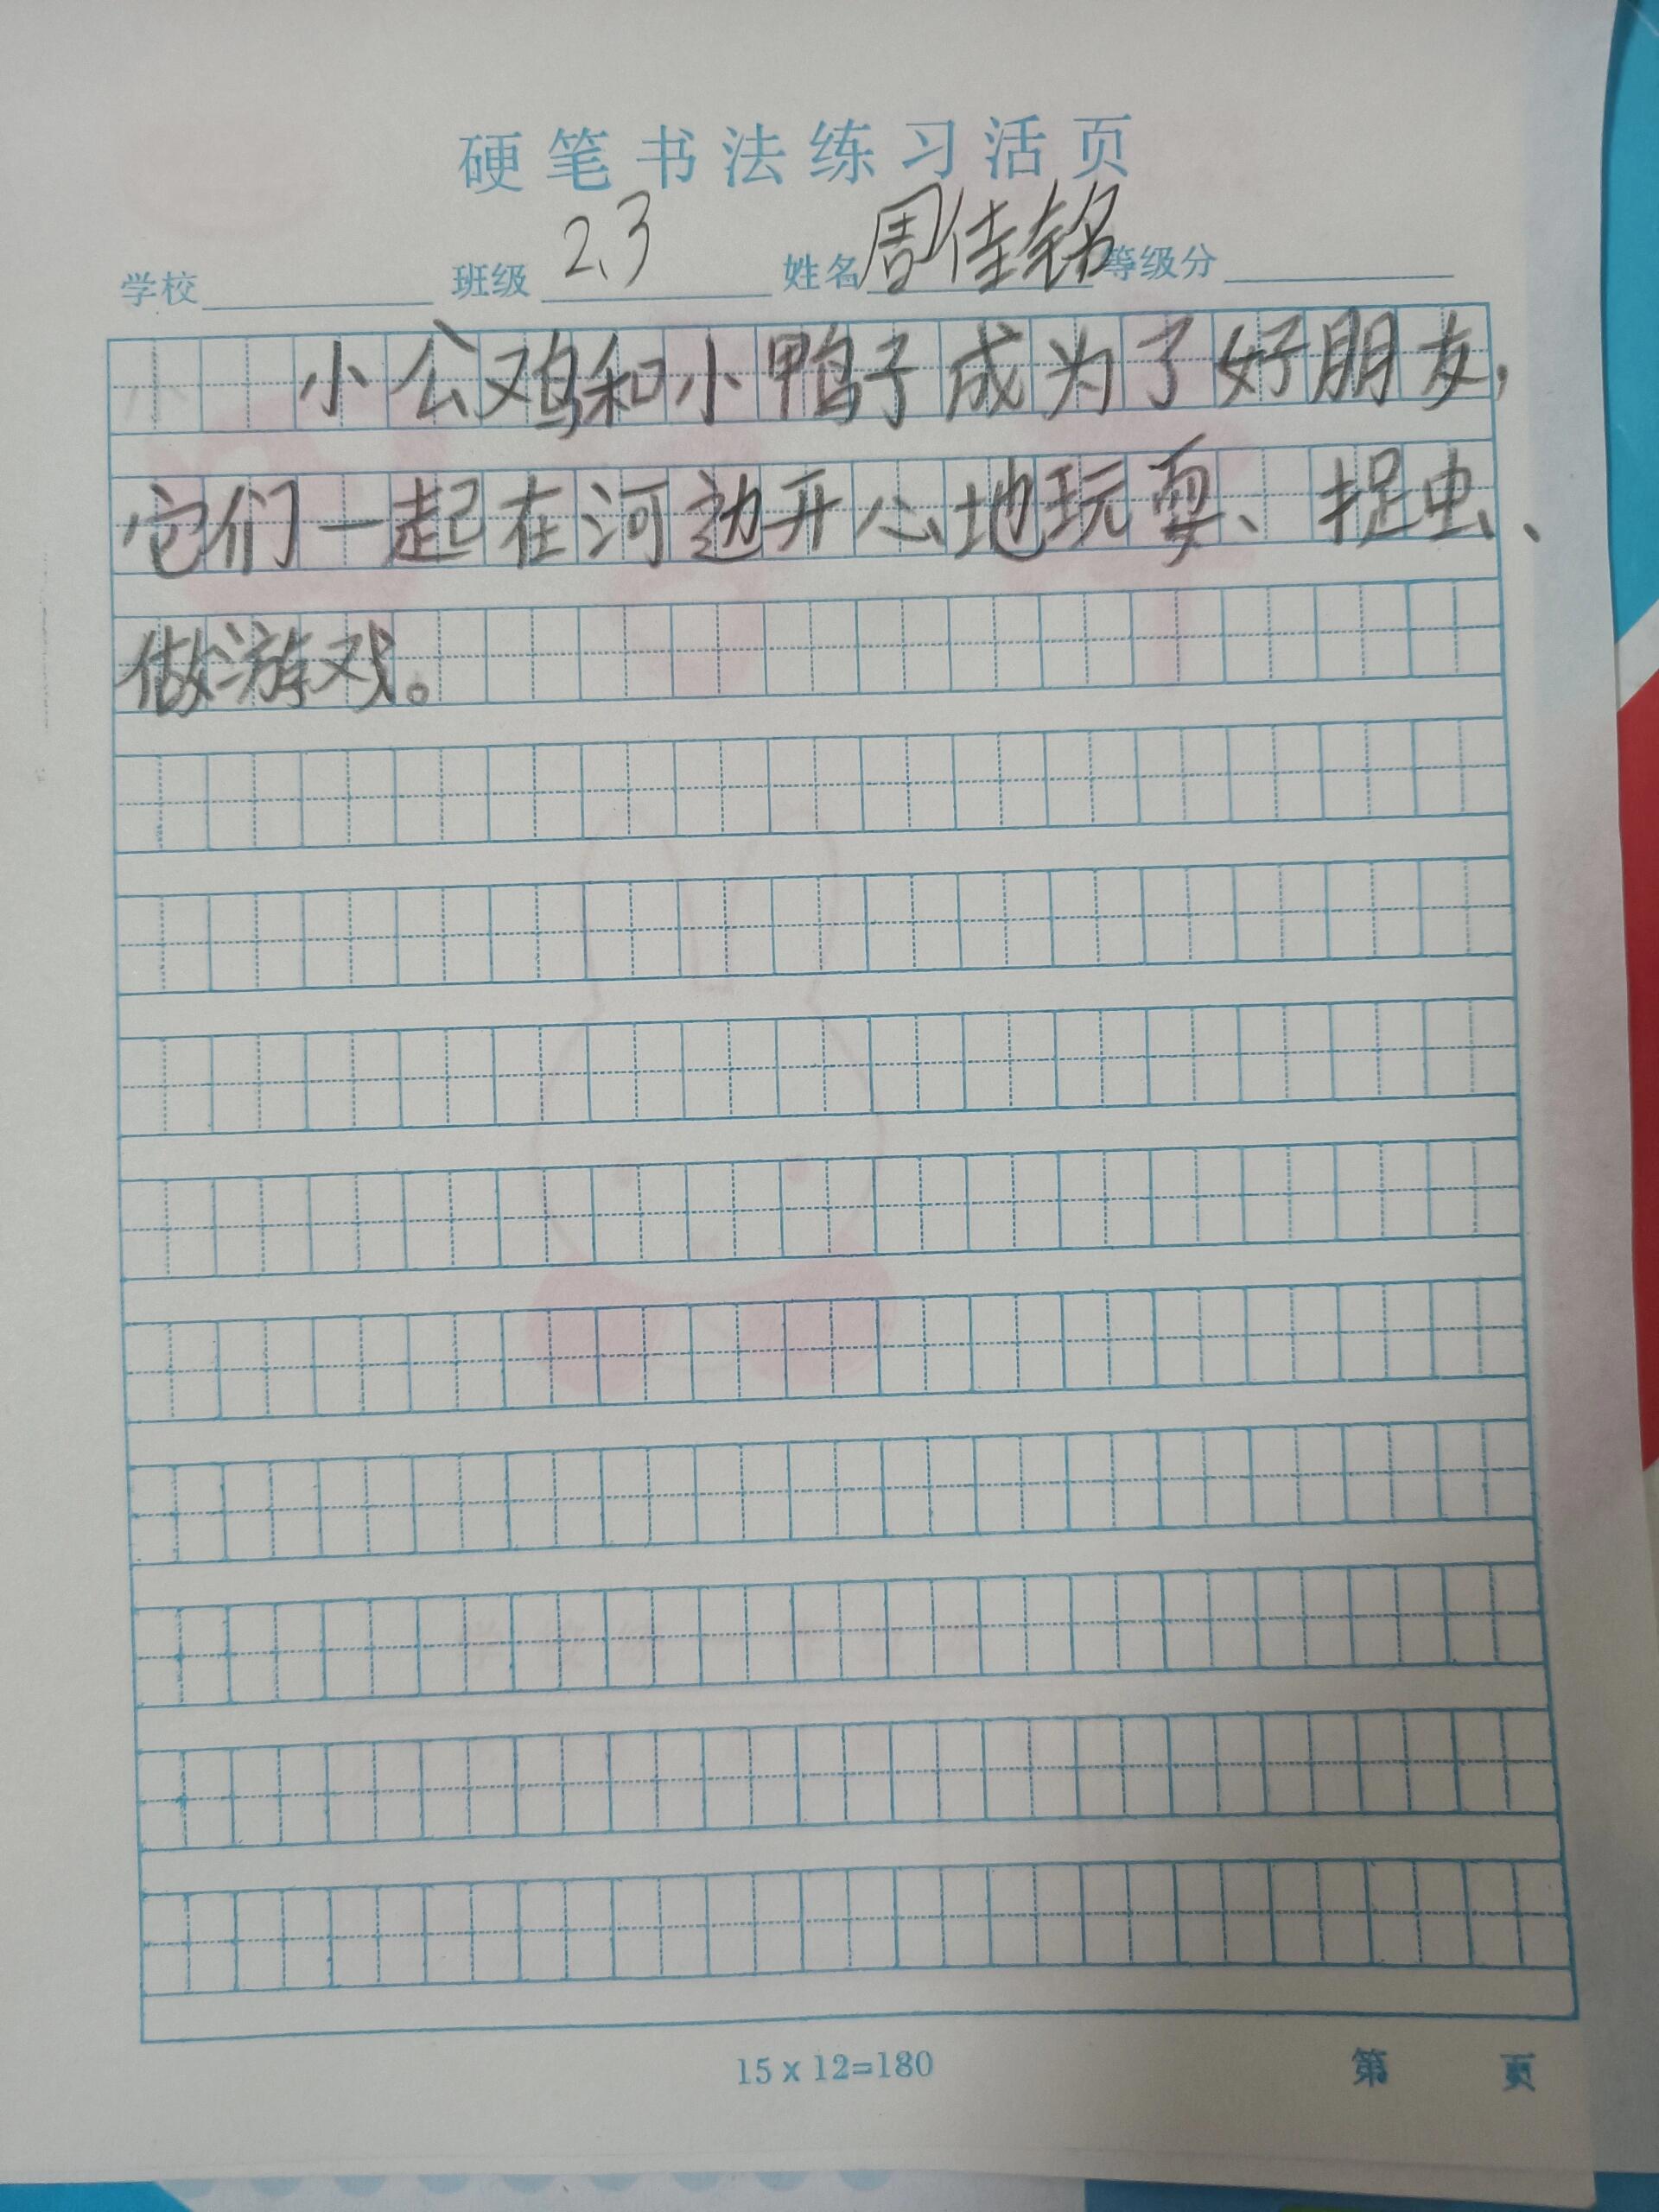 硬笔书法练习活页
学校 班级 2.3 姓名 周佳铭 等级分
小公鸡和小鸭子成为了好朋友，
它们一起在河边开心地玩耍、捉虫、
做游戏。
15 x 12=180 第 页